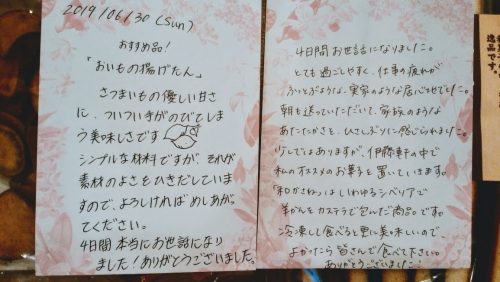 2019/06/30 (Sun)
おすすめ品!
「おいもの揚げたん」
さつまいもの優しい甘さ
に、ついつい手がのびてしま
う美味しさです
シンプルな材料ですが、それが
素材のよさをひきだしていま
すので、よろしければめしあがっ
てください。
4日間本当にお世話になり
ました!ありがとうございました。
4日間お世話になりました。
とても過ごしやすく、仕事の疲れが
ふっとぶような、実家のような居心地でした。
朝も送っていただいて、家族のような
あたたかさを、ひさしぶりに感じられました。
少しではありますが、伊藤軒の中で
私のオススメのお菓子を置いていきます。
「和かさねっ」はいわゆるシベリアで
羊かんをカステラで包んだ商品です。
冷凍して食べると更に美味しいので、
よかったら皆さんで食べて下さい。
ありがとうございました。
逸品です。